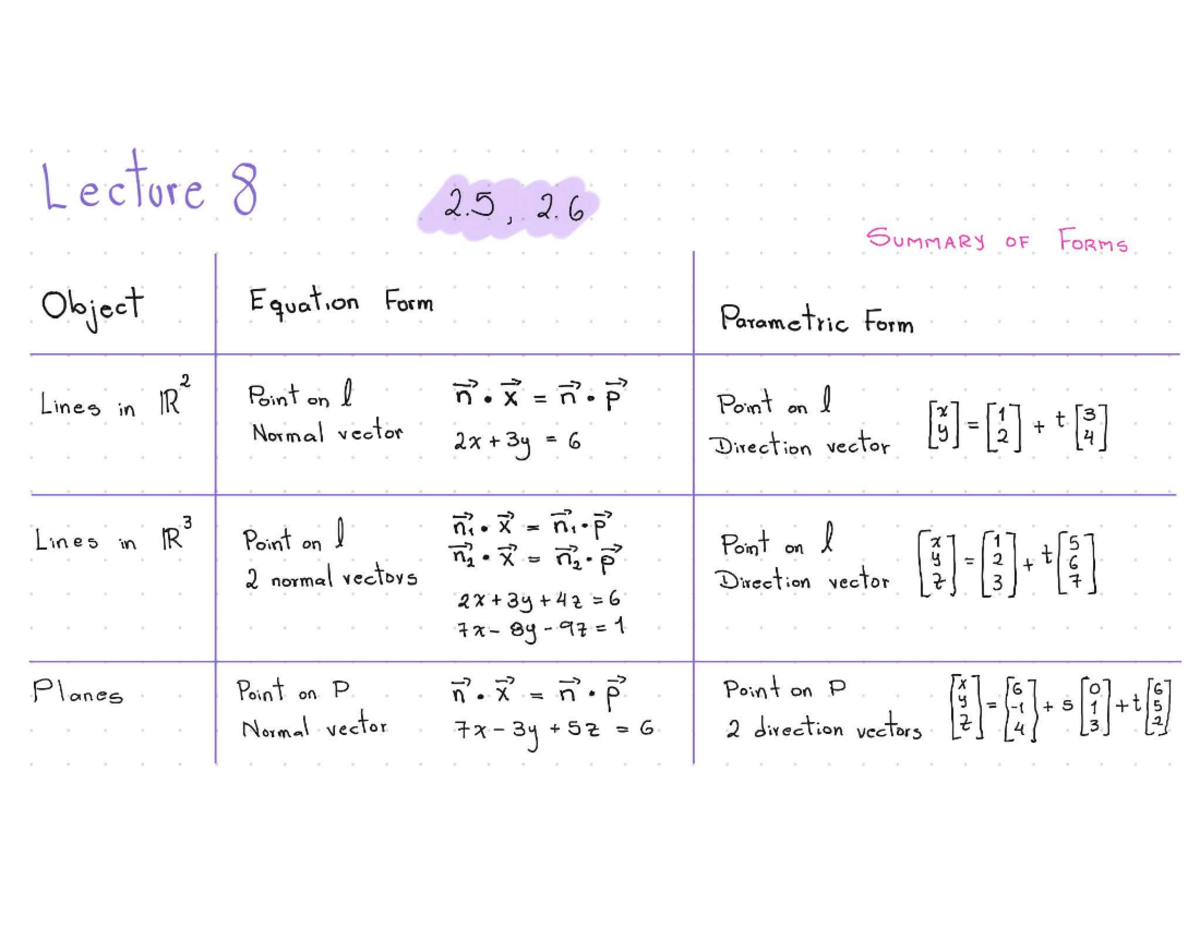 Lecture 8
2.5, 2.6
SUMMARY OF FORMS
Object
Equation Form
Parametric Form
Lines in ℝ²
Point on l
Normal vector
n⃗ • x⃗ = n⃗ • p⃗
2x + 3y = 6
Point on l
Direction vector
[x y] = [1 2] + t [3 4]
Lines in ℝ³
Point on l
2 normal vectors
n⃗₁ • x⃗ = n⃗₁ • p⃗
n⃗₂ • x⃗ = n⃗₂ • p⃗
2x + 3y + 4z = 6
7x - 8y - 9z = 1
Point on l
Direction vector
[x y z] = [1 2 3] + t [5 6 7]
Planes
Point on P
Normal vector
n⃗ • x⃗ = n⃗ • p⃗
7x - 3y + 5z = 6
Point on P
2 direction vectors
[x y z] = [6 -1 4] + s [0 1 3] + t [6 5 2]